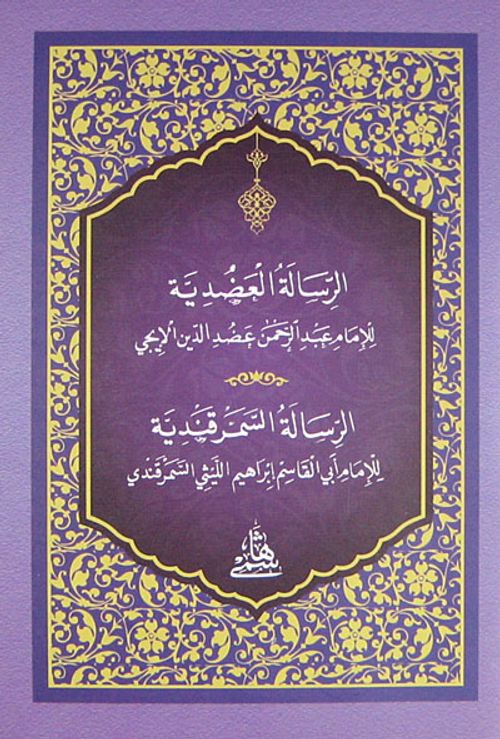 الرِّسَالَةُ الْعَضُدِيَّة
لِلْإِمَامِ عَبْدِ الرَّحْمٰنِ عَضُدِ الدِّينِ الْإِيجِي
الرِّسَالَةُ السَّمَرْقَنْدِيَّة
لِلْإِمَامِ أَبِي الْقَاسِمِ إِبْرَاهِيمَ اللَّيْثِي السَّمَرْقَنْدِي
هاشمي